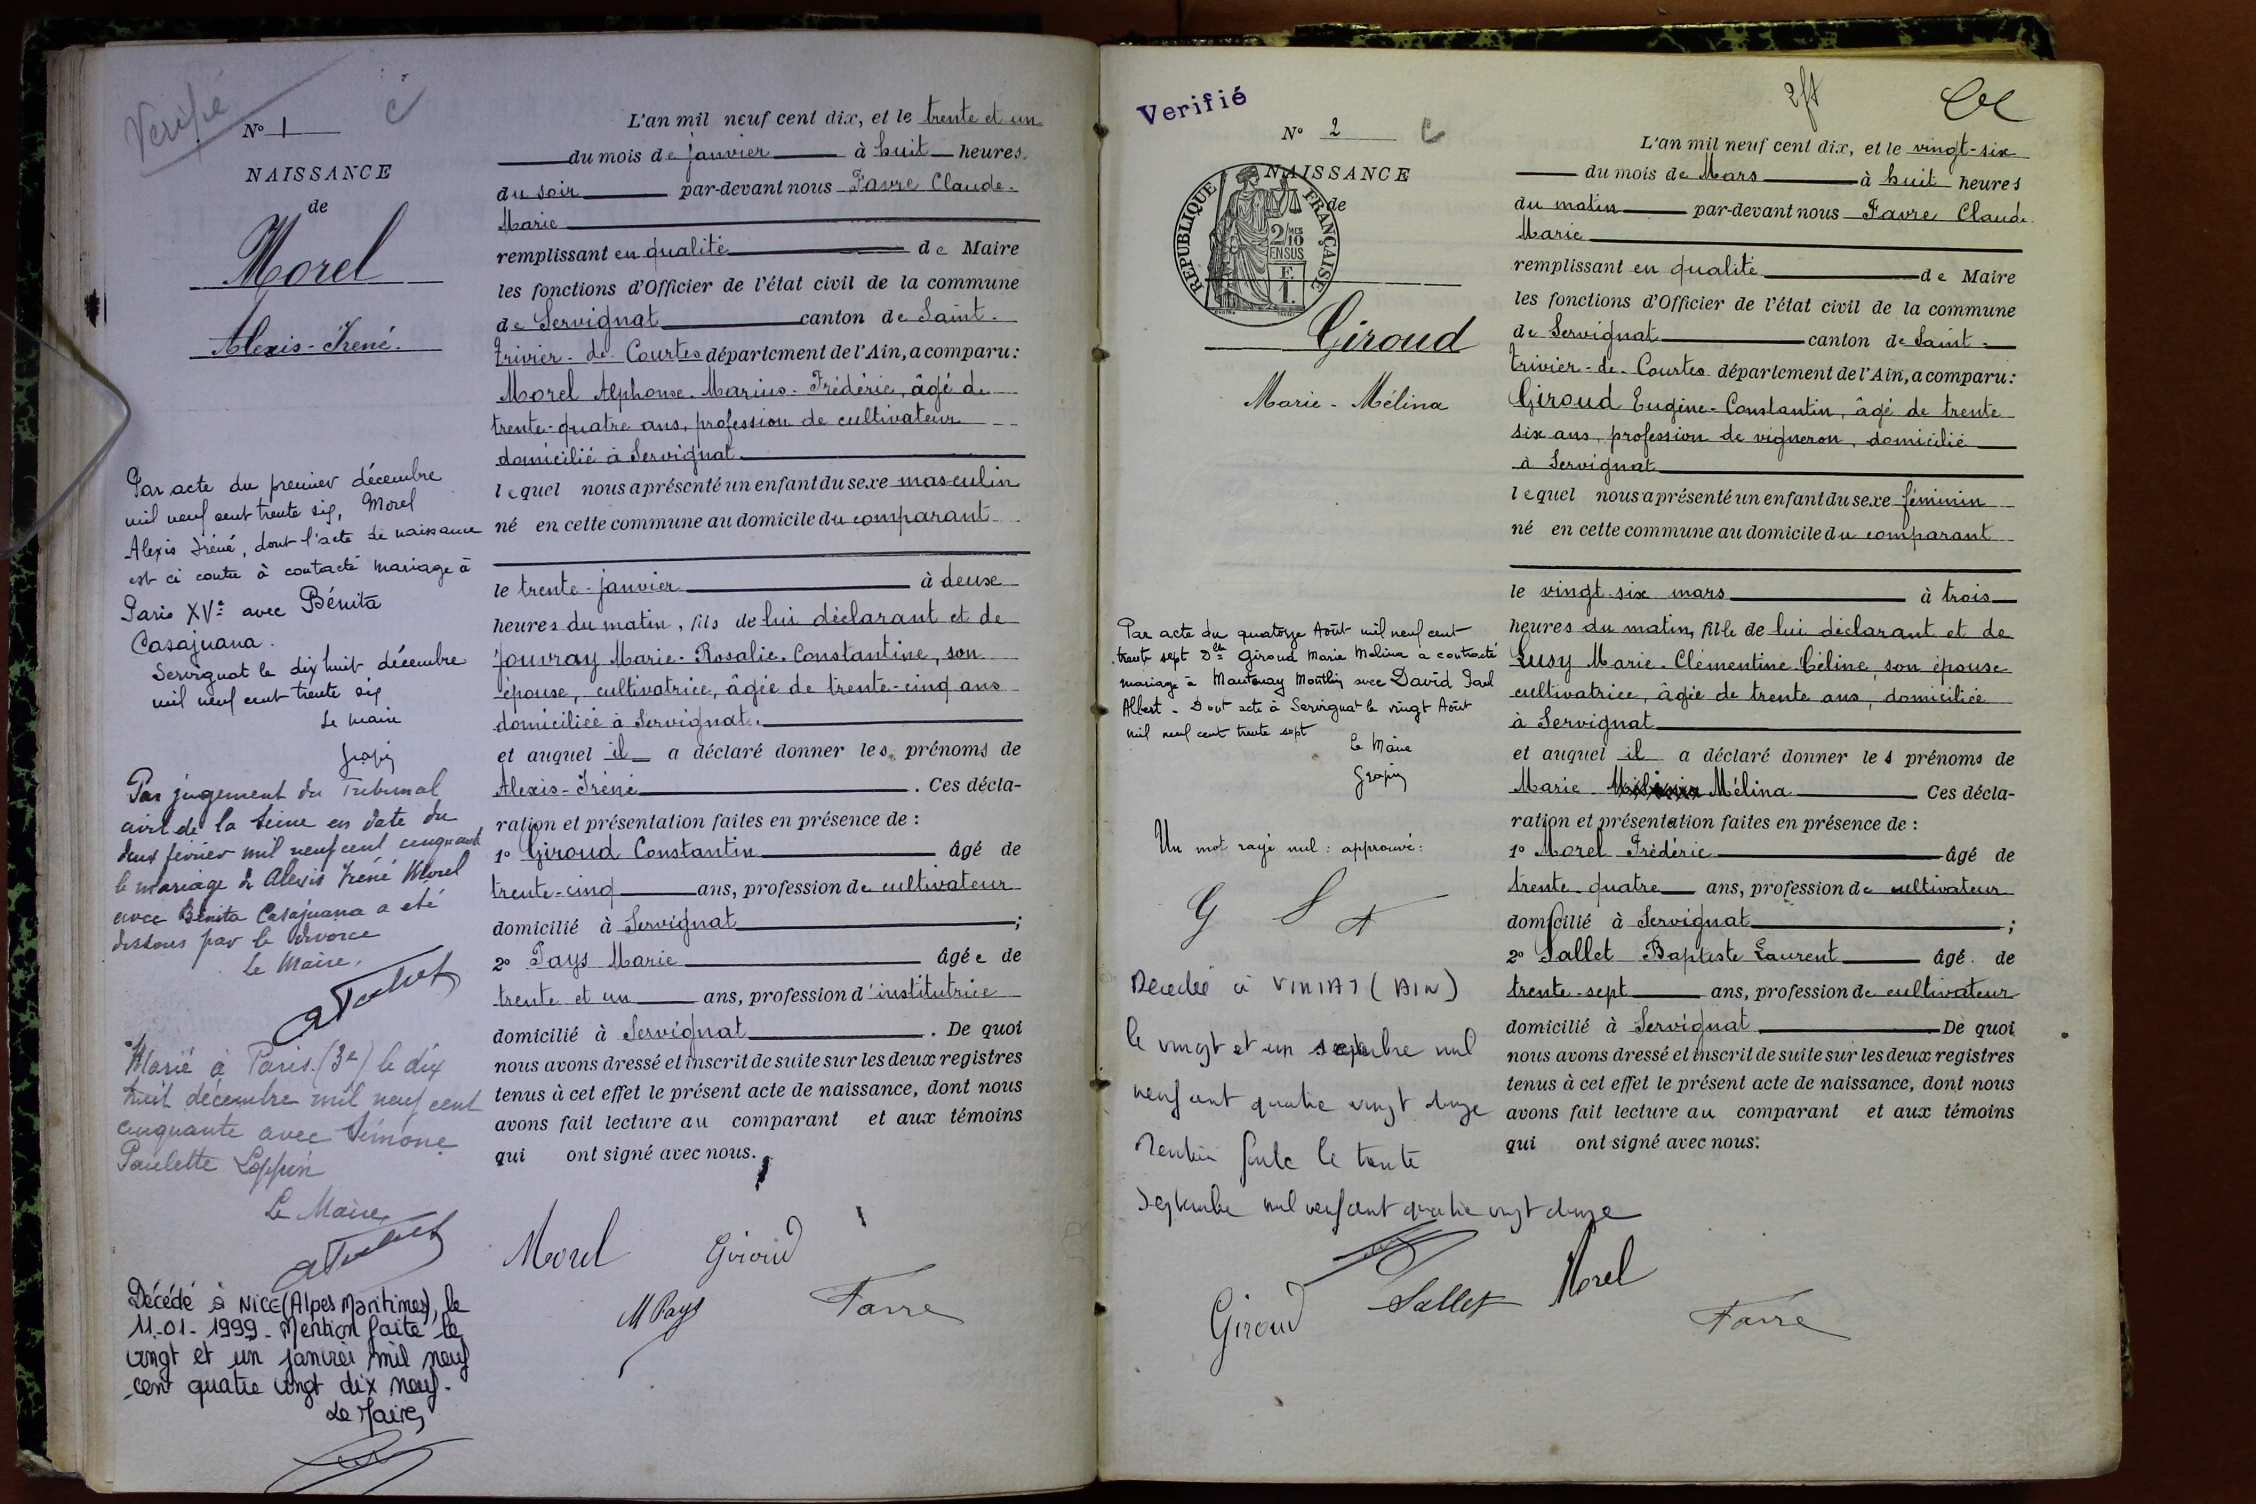 Verifié
N° 1
C
NAISSANCE
de
Morel
Alexis-Iréné.
Par acte du premier décembre
mil neuf cent trente six, Morel
Alexis Iréné, dont l'acte de naissance
est ci contre à contacté mariage à
Paris XVe avec Bénita
Casajuana.
Servignat le dix huit décembre
mil neuf cent trente six
Le Maire
Grapin
Par jugement du Tribunal
civil de la Seine en date du
deux février mil neuf cent cinquante
le mariage de Alexis Iréné Morel
avec Bénita Casajuana a été
dissous par le divorce
Le Maire,
Marié à Paris (3e) le dix
huit décembre mil neuf cent
cinquante avec Simone
Paulette Loppin
Le Maire,
Décédé à NICE (Alpes Maritimes), le
11-01-1999 - Mention faite le
vingt et un janvier mil neuf
cent quatre vingt dix neuf.
Le Maire,
L'an mil neuf cent dix, et le trente et un
du mois de janvier à huit heures
du soir par-devant nous Favre Claude-
Marie
remplissant en qualité de Maire
les fonctions d'Officier de l'état civil de la commune
de Servignat canton de Saint-
Trivier-de-Courtes département de l'Ain, a comparu:
Morel Alphonse-Marius-Frédéric, âgé de
trente-quatre ans, profession de cultivateur
domicilié à Servignat
lequel nous a présenté un enfant du sexe masculin
né en cette commune au domicile du comparant
le trente-janvier à deux
heures du matin, fils de lui déclarant et de
Jouvray Marie-Rosalie-Constantine, son
épouse, cultivatrice, âgée de trente-cinq ans
domiciliée à Servignat.
et auquel il a déclaré donner les prénoms de
Alexis-Iréné . Ces décla-
ration et présentation faites en présence de :
1° Giroud Constantin âgé de
trente-cinq ans, profession de cultivateur
domicilié à Servignat ;
2° Pays Marie âgée de
trente et un ans, profession d'institutrice
domicilié à Servignat . De quoi
nous avons dressé et inscrit de suite sur les deux registres
tenus à cet effet le présent acte de naissance, dont nous
avons fait lecture au comparant et aux témoins
qui ont signé avec nous.
Morel Giroud
M Pays Favre
Verifié
N° 2
C
NAISSANCE
de
REPUBLIQUE FRANÇAISE
2/10 MES
EN SUS
F.
1.
Giroud
Marie-Mélina
Par acte du quatorze Août mil neuf cent
trente sept Dlle Giroud Marie Melina a contracté
mariage à Mantenay Montlin avec David Paul
Albert - Dont acte à Servignat le vingt Août
mil neuf cent trente sept
Le Maire
Grapin
Un mot rayé nul : approuvé :
G S F
Décédée à VIRIAT (AIN)
le vingt et un septembre mil
neuf cent quatre vingt douze
Mention faite le trente
septembre mil neuf cent quatre vingt douze
L'an mil neuf cent dix, et le vingt-six
du mois de Mars à huit heures
du matin par-devant nous Favre Claude
Marie
remplissant en qualité de Maire
les fonctions d'Officier de l'état civil de la commune
de Servignat canton de Saint-
Trivier-de-Courtes département de l'Ain, a comparu:
Giroud Eugène-Constantin, âgé de trente
six ans, profession de vigneron, domicilié
à Servignat
lequel nous a présenté un enfant du sexe féminin
né en cette commune au domicile du comparant
le vingt-six mars à trois
heures du matin, fille de lui déclarant et de
Lusy Marie-Clémentine-Céline, son épouse
cultivatrice, âgée de trente ans, domiciliée
à Servignat
et auquel il a déclaré donner les prénoms de
Marie Mélina Ces décla-
ration et présentation faites en présence de :
1° Morel Frédéric âgé de
trente-quatre ans, profession de cultivateur
domicilié à Servignat ;
2° Sallet Baptiste Laurent âgé de
trente-sept ans, profession de cultivateur
domicilié à Servignat De quoi
nous avons dressé et inscrit de suite sur les deux registres
tenus à cet effet le présent acte de naissance, dont nous
avons fait lecture au comparant et aux témoins
qui ont signé avec nous:
Giroud Sallet Morel
Favre